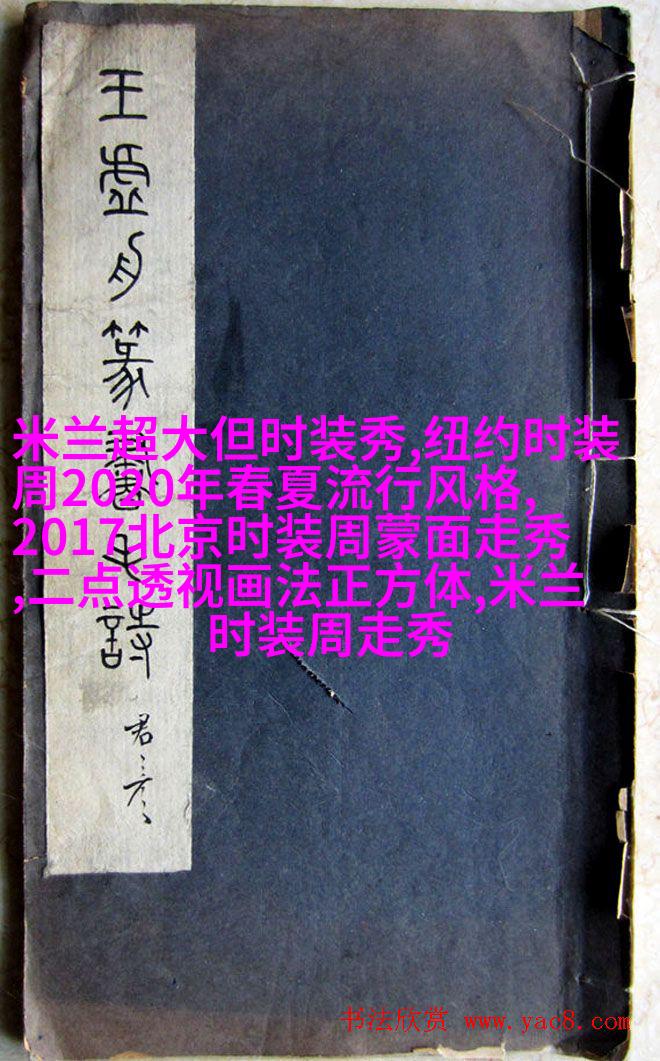 王虚舟篆书七诗
君彦
米兰超大但时装秀,纽约时装
周2020年春夏流行风格,
2017北京时装周蒙面走秀
,二点透视画法正方体,米兰
时装周走秀
书法欣赏 www.yac8.com